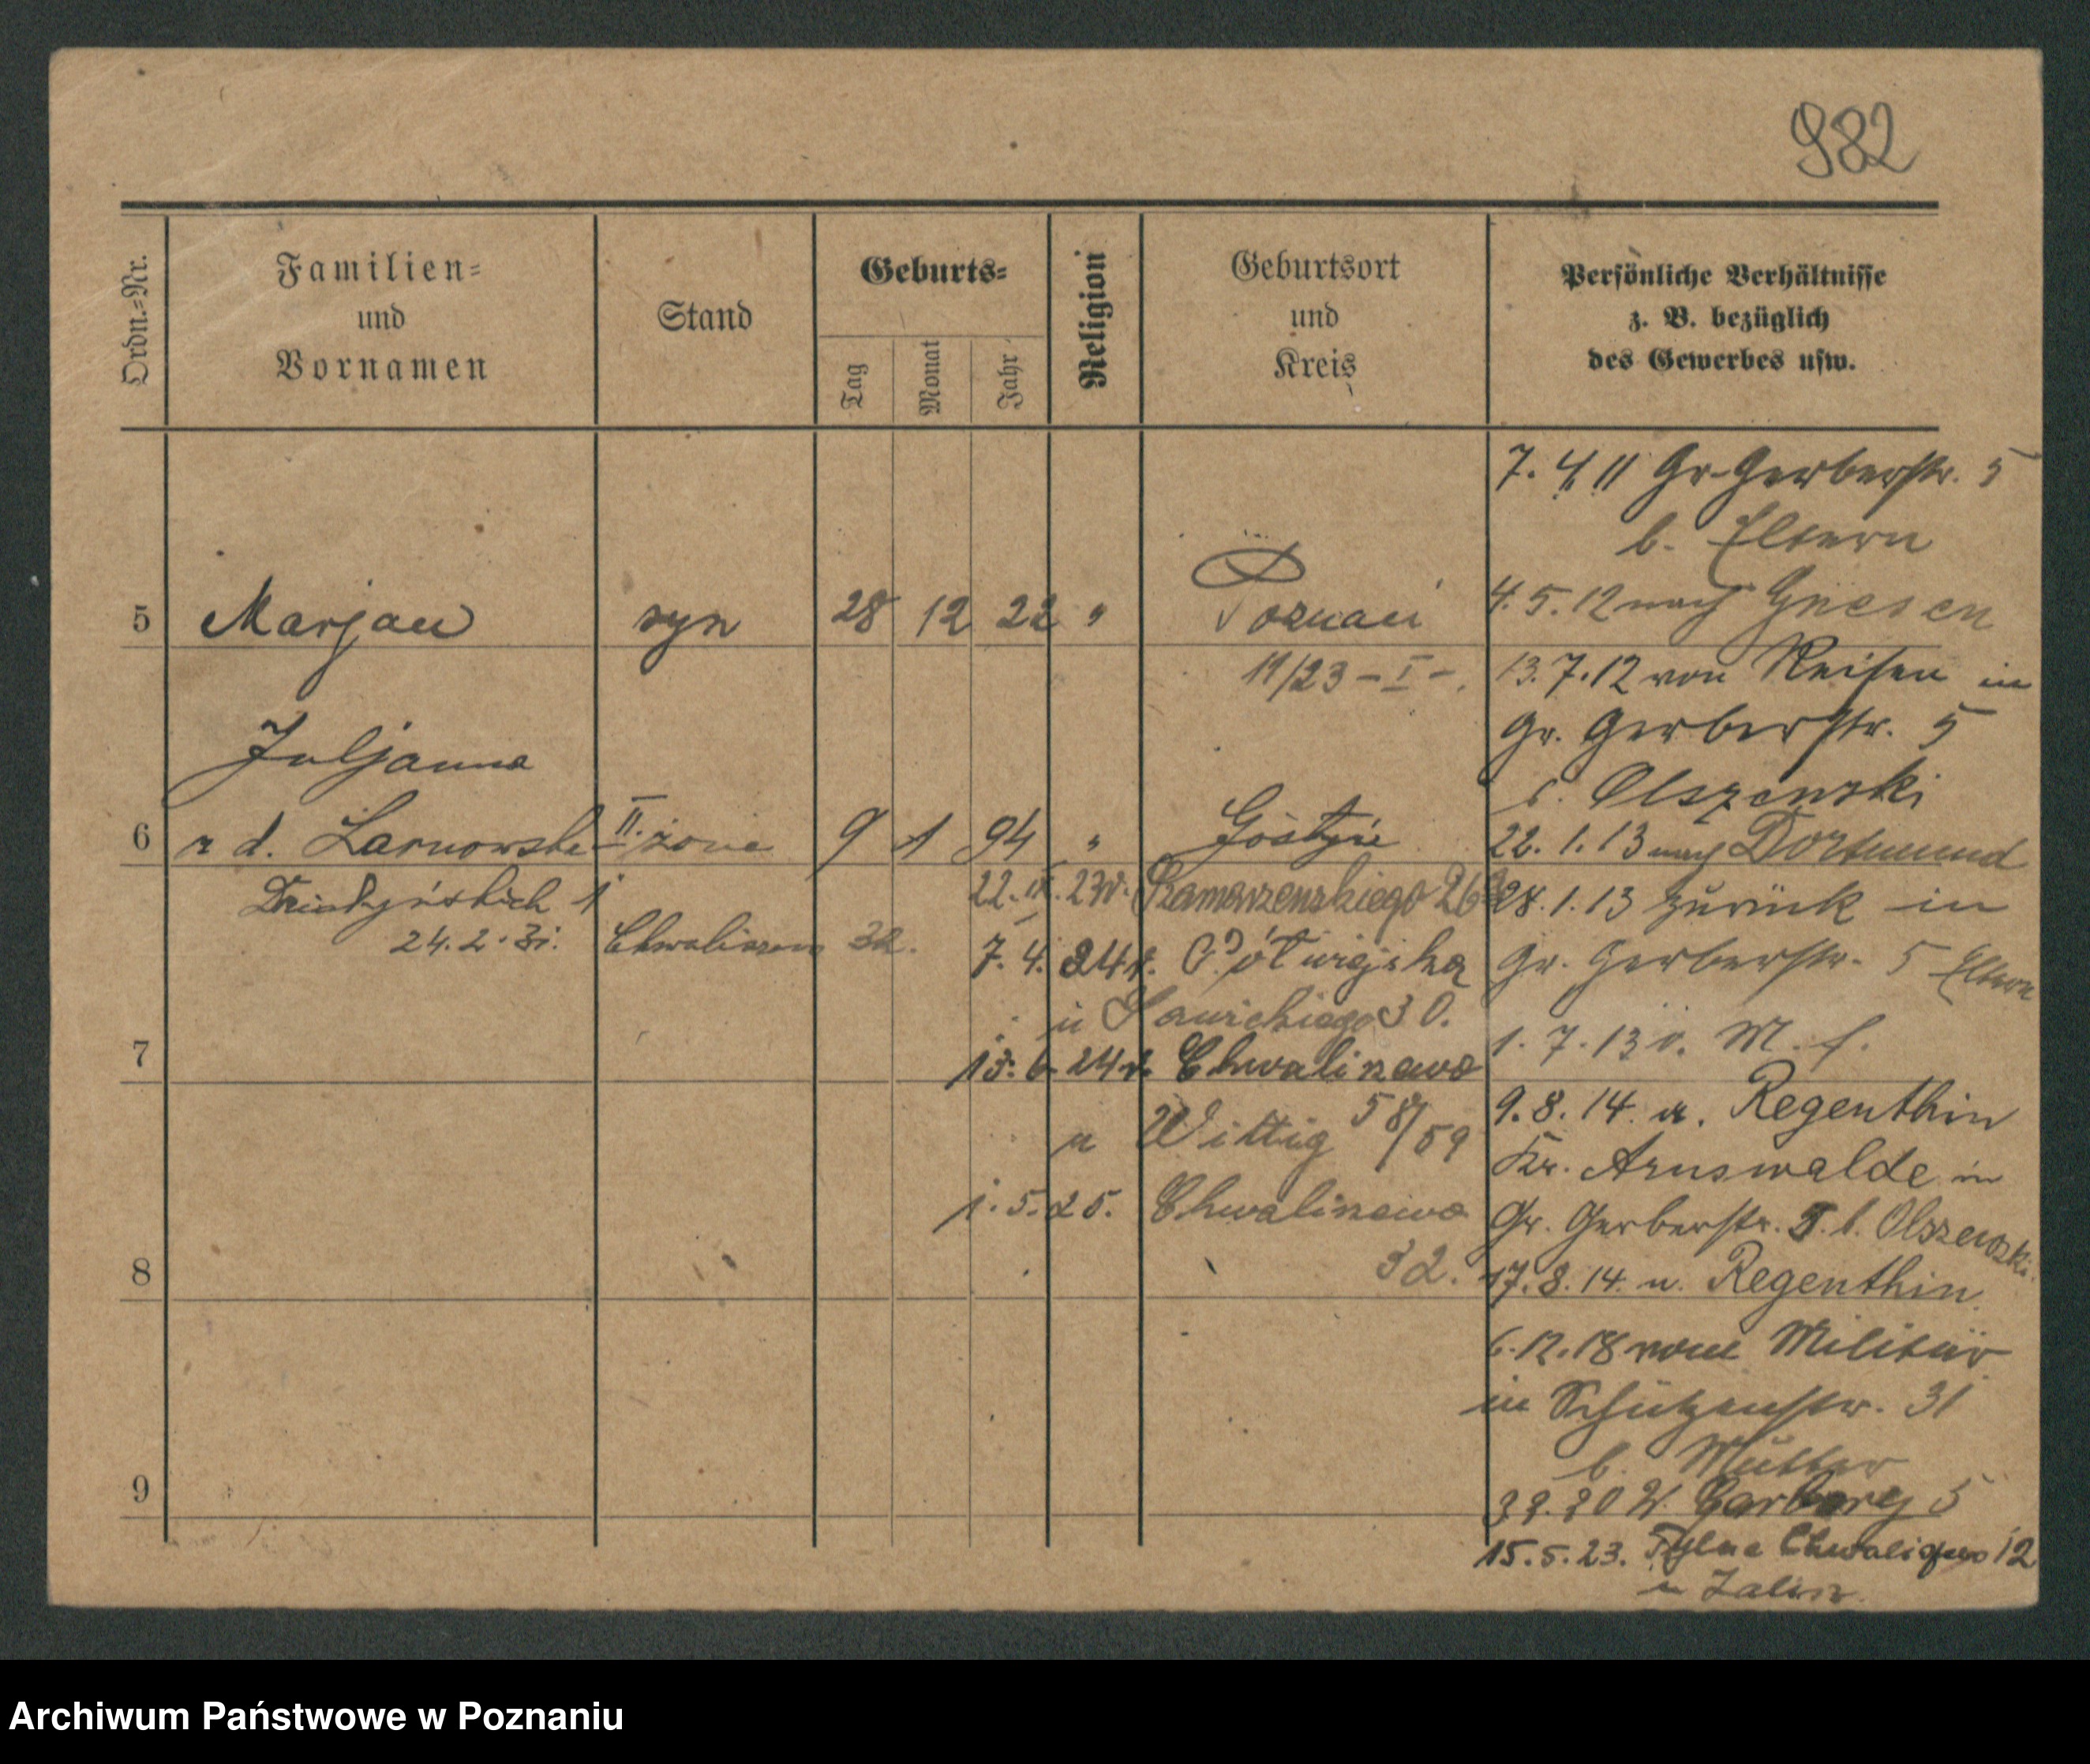 982
Ordn.=Nr.
Familien=
und
Vornamen
Stand
Geburts=
Tag
Monat
Jahr
Religion
Geburtsort
und
Kreis
Persönliche Verhältnisse
z. B. bezüglich
des Gewerbes usw.
5 Marjan syn 28 12 22 " Poznań
11/23 - I -
Juljanna
6 z d. II. żona 9 1 94 " Gostyń
22. 23
24.2.31. Chwaliszewo 32.
7. 4. 24
u 30.
7
13. 6. 24 Chwaliszewo
u Wittig 58/59
1. 5. 25. Chwaliszewo
8
32.
9
7. 4. 11 Gr. Gerberstr. 5
b. Eltern
4. 5. 12 nach Gnesen
13. 7. 12 von Reisen in
Gr. Gerberstr. 5
b. Olszewski
22. 1. 13 nach Dortmund
28. 1. 13 zurück in
Gr. Gerberstr. 5 Eltern
1. 7. 13 v. M. f.
9. 8. 14 a. Regenthin
Kr. Arnswalde in
Gr. Gerberstr. 5. b. Olszewski.
17. 8. 14. n. Regenthin.
6. 12. 18 vom Militär
in Schützenstr. 31
b. Mutter
W. Garbary 5
15. 5. 23. Tylne Chwaliszewo 12
u
Archiwum Państwowe w Poznaniu